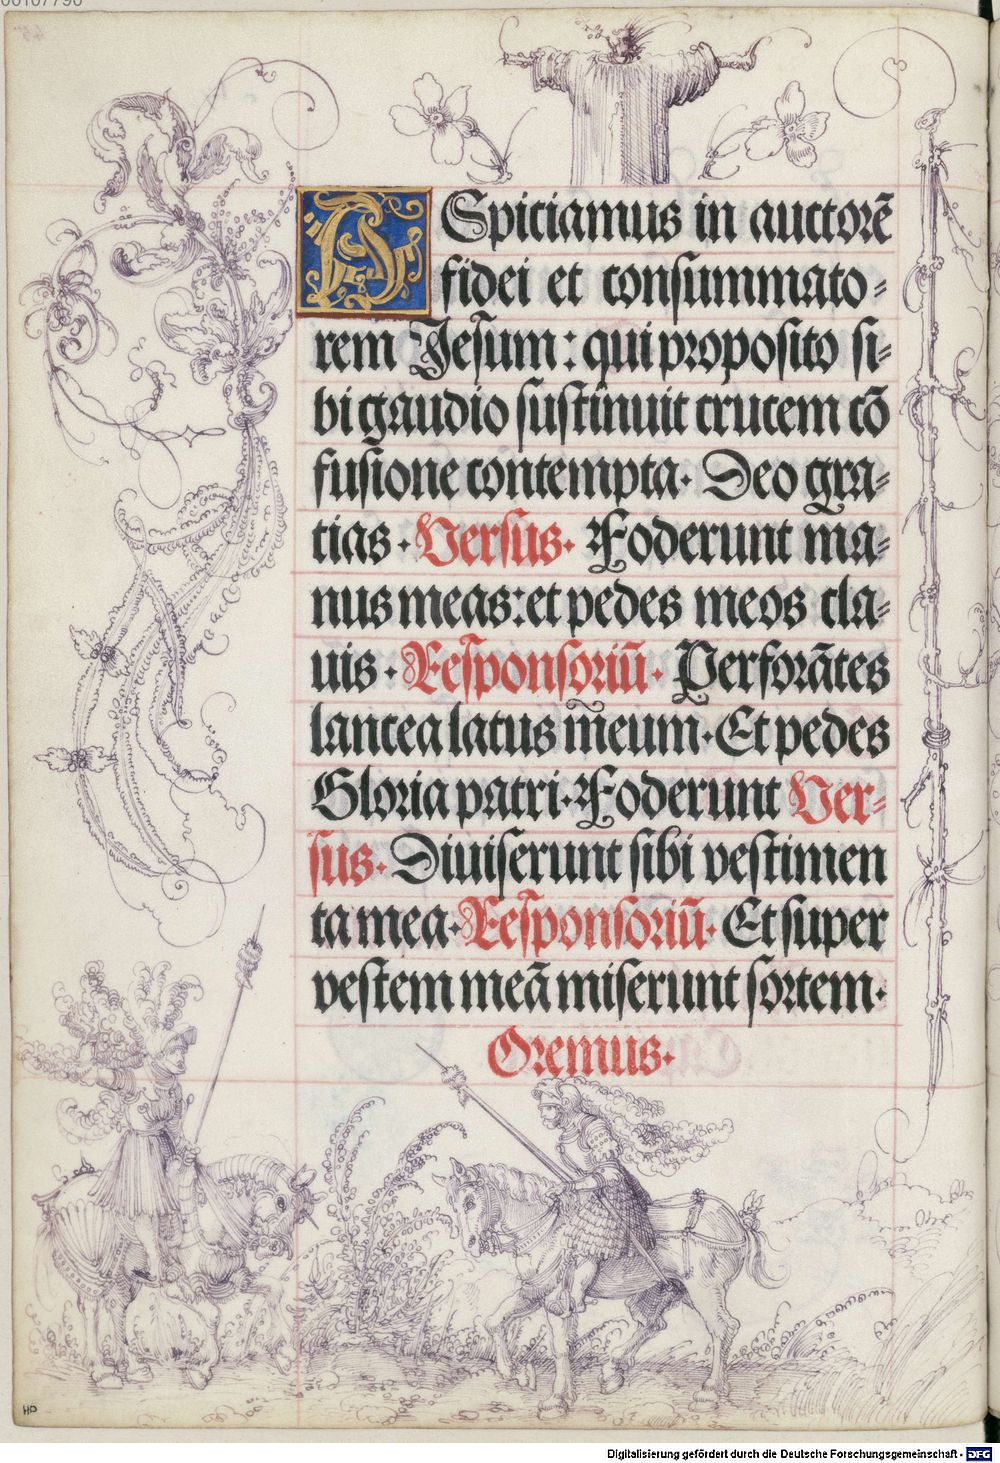 00107790
ASpiciamus in auctorē
fidei et consummato-
rem Jesum: qui proposito si-
bi gaudio sustinuit crucem cō
fusione contempta. Deo gra-
tias. Versus. Foderunt ma-
nus meas: et pedes meos cla-
uis. Responsoriū. Perforātes
lancea latus meum. Et pedes
Gloria patri. Foderunt Ver-
sus. Diuiserunt sibi vestimen
ta mea. Responsoriū. Et super
vestem meā miserunt sortem.
Oremus.
HD
Digitalisierung gefördert durch die Deutsche Forschungsgemeinschaft - DFG